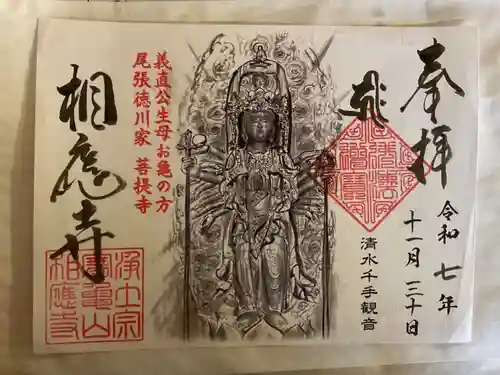 奉拝
令和七年
十一月三十日
清水千手観音
義直公生母お亀の方
尾張徳川家 菩提寺
相應寺
浄土宗
寶亀山
相應寺